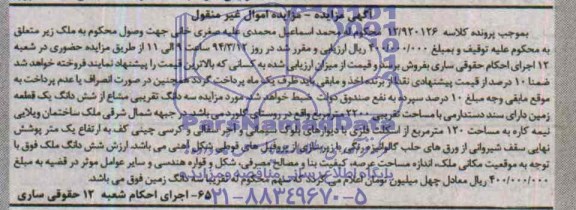 آگهی مزایده - مزایده اموال غیر منقول
بموجب پرونده کلاسه ۱۲/۹۲۰۱۲۶ محکوم له محمد اسماعیل محمدی علیه صغری خالی جهت وصول محکوم به ملک زیر متعلق
به محکوم علیه توقیف و بمبلغ ۴۰۰/۰۰۰/۰۰۰ ریال ارزیابی و مقرر شد در روز ۹۴/۳/۱۲ ساعت ۹ الی ۱۱ از طریق مزایده حضوری در شعبه
۱۲ اجرای احکام حقوقی ساری بفروش برسد و قیمت از میزان ارزیابی شده به کسانی که بالاترین قیمت را پیشنهاد نمایند فروخته خواهد شد
ضمنا ۱۰ درصد از قیمت پیشنهادی نقدا از برنده اخذ و مابقی باید ظرف یک ماه پرداخت گردد همچنین در صورت انصراف یا عدم پرداخت به
موقع مابقی وجه مبلغ ۱۰ درصد سپرده به نفع صندوق دولت ضبط خواهد شد. مورد مزایده سه دانگ تقریبی مشاع از شش دانگ یک قطعه
زمین دارای سند دستدارمی با مساحت تقریبی ۲۲۰۰ مترمربع واقع در روستای می باشد در جهت شمال شرقی ملک ساختمان ویلایی
نیمه کاره به مساحت ۱۲۰ مترمربع از اسکلت فلزی با دیوارهای بلوک سیمانی و آجر سفالی و کرسی چینی کف به ارتفاع یک متر پوشش
نهایی سقف شیروانی از ورق های حلب گالوانیزه رنگی با زیرسازی از پروفیل های قوطی شکل آهنی می باشد. ارزش شش دانگ ملک فوق با
توجه به موقعیت مکانی ملک، اندازه مساحت عرصه، کیفیت بنا و مصالح مصرفی، شکل و قواره هندسی و سایر عوامل موثر در قضیه به مبلغ
۴۰۰/۰۰۰/۰۰۰ ریال معادل چهل میلیون تومان اعلام می گردد که سهم محکوم له تقریبا سه دانگ زمین فوق می باشد.
۶۵- اجرای احکام شعبه ۱۲ حقوقی ساری
ParsNamadData
پایگاه اطلاع رسانی مناقصه و مزایده
۰۲۱-۸۸۳۴۹۶۷۰-۵